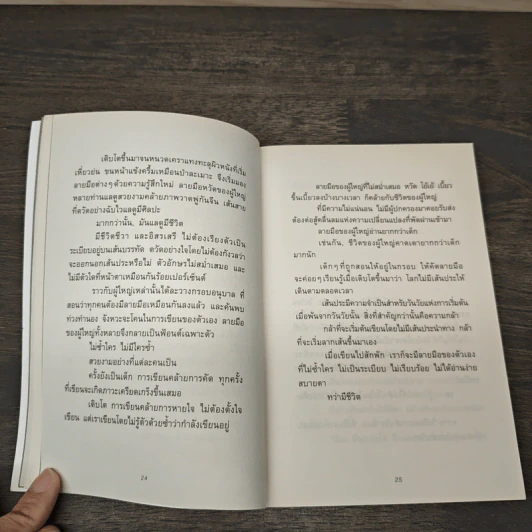 เติบโตขึ้นมาจนหนวดเคราแทงทะลุผิวหนังที่เริ่ม
เหี่ยวย่น ขนหน้าแข้งครึ้มเหมือนป่าละเมาะ จึงเริ่มมอง
ลายมือต่างๆ ด้วยความรู้สึกใหม่ ลายมือหวัดของผู้ใหญ่
หลายท่านแลดูสวยงามคล้ายภาพวาดพู่กันจีน เส้นสาย
ที่ตวัดอย่างฉับไวแลดูมีศิลปะ
มากกว่านั้น, มันแลดูมีชีวิต
มีชีวิตชีวา และอิสรเสรี ไม่ต้องเรียงตัวเป็น
ระเบียบอยู่บนเส้นบรรทัด ตวัดอย่างใจโดยไม่ต้องกังวลว่า
จะออกนอกเส้นประหรือไม่ ตัวอักษรไม่สม่ำเสมอ และ
ไม่มีตัวใดที่หน้าตาเหมือนกันร้อยเปอร์เซ็นต์
ราวกับผู้ใหญ่เหล่านั้นได้ละวางกรอบอนุบาล ที่
สอนว่าทุกคนต้องมีลายมือเหมือนกันลงแล้ว และค้นพบ
ท่วงทำนอง จังหวะจะโคนในการเขียนของตัวเอง ลายมือ
ของผู้ใหญ่ทั้งหลายจึงกลายเป็นฟ้อนต์เฉพาะตัว
ไม่ซ้ำใคร ไม่มีใครซ้ำ
สวยงามอย่างที่แต่ละคนเป็น
ครั้งยังเป็นเด็ก การเขียนคล้ายการคัด ทุกครั้ง
ที่เขียนจะเกิดภาวะเครียดเกร็งขึ้นเสมอ
เติบโต การเขียนคล้ายการหายใจ ไม่ต้องตั้งใจ
เขียน แต่เราเขียนโดยไม่รู้ตัวด้วยซ้ำว่ากำลังเขียนอยู่
24
ลายมือของผู้ใหญ่ที่ไม่สม่ำเสมอ หวัด โย้เย้ เบี้ยว
ขึ้นเบี้ยวลงบ้างบางเวลา ก็คล้ายกับชีวิตของผู้ใหญ่
ที่มีความไม่แน่นอน ไม่มีผู้ปกครองมาคอยรับส่ง
ต้องต่อสู้คลื่นลมแห่งความเปลี่ยนแปลงที่พัดผ่านเข้ามา
ลายมือของผู้ใหญ่อ่านยากกว่าเด็ก
เช่นกัน, ชีวิตของผู้ใหญ่คาดเดายากกว่าเด็ก
มากนัก
เด็กๆ ที่ถูกสอนให้อยู่ในกรอบ ให้คัดลายมือ
จะค่อยๆ เรียนรู้เมื่อเติบโตขึ้นมาว่า โลกไม่มีเส้นประให้
เดินตามตลอดเวลา
เส้นประมีความจำเป็นสำหรับวันวัยแห่งการเริ่มต้น
เมื่อพ้นจากวันวัยนั้น สิ่งที่สำคัญกว่านั้นคือความกล้า
กล้าที่จะเริ่มต้นเขียนโดยไม่มีเส้นประนำทาง กล้า
ที่จะเริ่มลากเส้นขึ้นมาเอง
เมื่อเขียนไปสักพัก เราก็จะมีลายมือของตัวเอง
ที่ไม่ซ้ำใคร ไม่เป็นระเบียบ ไม่เรียบร้อย ไม่ได้อ่านง่าย
สบายตา
ทว่ามีชีวิต
25